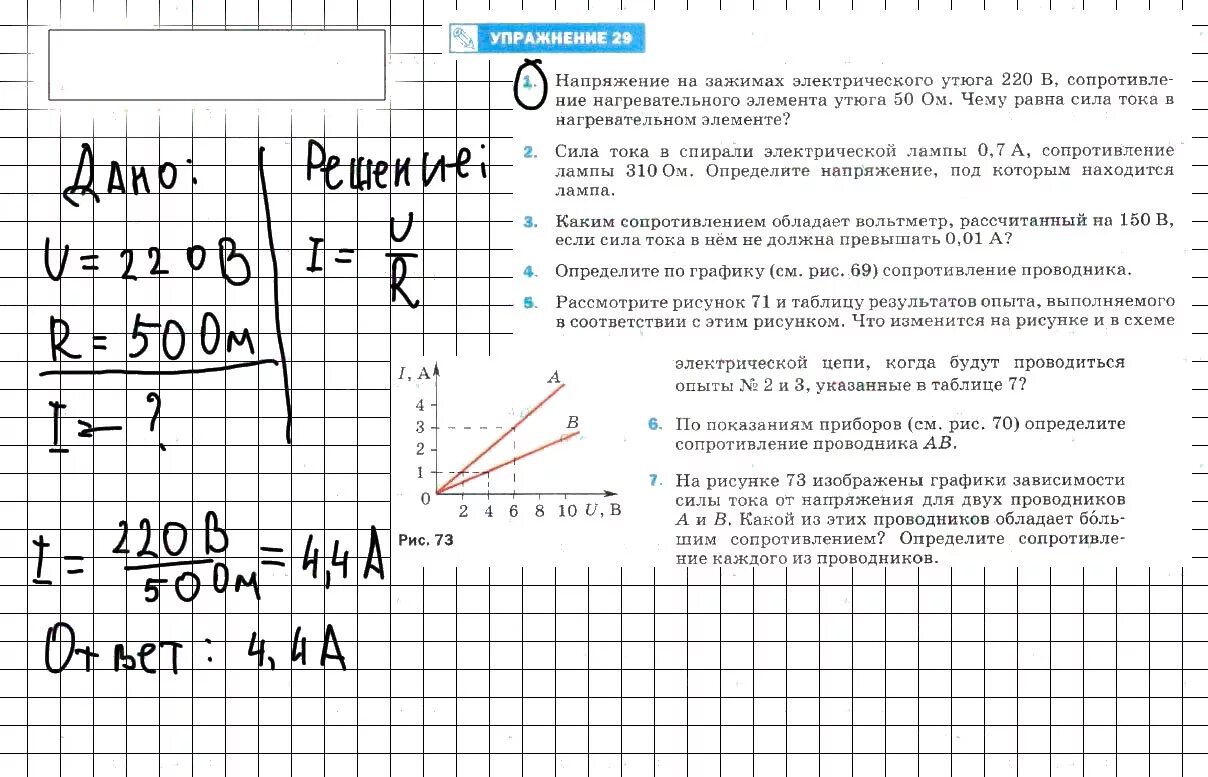 УПРАЖНЕНИЕ 29
1. Напряжение на зажимах электрического утюга 220 В, сопротивле-
ние нагревательного элемента утюга 50 Ом. Чему равна сила тока в
нагревательном элементе?
2. Сила тока в спирали электрической лампы 0,7 А, сопротивление
лампы 310 Ом. Определите напряжение, под которым находится
лампа.
3. Каким сопротивлением обладает вольтметр, рассчитанный на 150 В,
если сила тока в нём не должна превышать 0,01 А?
4. Определите по графику (см. рис. 69) сопротивление проводника.
5. Рассмотрите рисунок 71 и таблицу результатов опыта, выполняемого
в соответствии с этим рисунком. Что изменится на рисунке и в схеме
электрической цепи, когда будут проводиться
опыты № 2 и 3, указанные в таблице 7?
6. По показаниям приборов (см. рис. 70) определите
сопротивление проводника AB.
7. На рисунке 73 изображены графики зависимости
силы тока от напряжения для двух проводников
A и B. Какой из этих проводников обладает бо́ль-
шим сопротивлением? Определите сопротивле-
ние каждого из проводников.
I, А
A
4
B
3
2
1
0
2 4 6 8 10 U, В
Рис. 73
Дано:
U = 220 В
R = 50 Ом
I = ?
Решение:
I = U/R
I = 220 В/50 Ом = 4,4 А
Ответ: 4,4 А